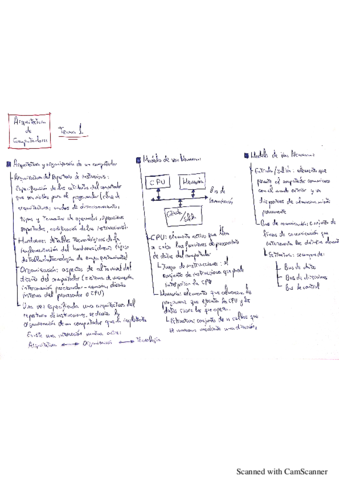 Arquitectura
de
Computadores
Tema 1
Arquitectura y organización de un computador
Arquitectura del repertorio de instrucciones:
Especificación de los atributos del computador
que son visibles por el programador (clase de
arquitectura, modos de direccionamiento,
tipos y tamaños de operandos, operaciones
soportadas, codificación de las instrucciones)
Hardware: detalles tecnológicos de la
implementación del hardware
Organización: aspectos de
diseño del computador (sistema de memoria,
interconexión procesador - memoria, diseño
interno del procesador o CPU)
Una vez especificada una arquitectura del
repertorio de instrucciones, se
organización de un computador que la implemente
Existe una interacción
Arquitectura Organización Tecnología
Modelo de von Neumann
CPU
Memoria
Bus de
comunicación
CPU: elemento activo que lleva
a cabo las funciones de procesamiento
de datos del computador
Juego de instrucciones: el
conjunto de instrucciones que puede
interpretar la CPU
Memoria: elemento que almacena los
programas que ejecuta la CPU y los
datos sobre los que opera
Estructura: conjunto de celdas que
se enumeran mediante una dirección
Modelo de von Neumann
Entrada/salida: elemento que
permite al computador comunicarse
con el mundo exterior y a
dispositivos de almacenamiento
permanente
Bus de comunicación: conjunto de
líneas de comunicación que
Bus de datos
Bus de direcciones
Bus de control
Scanned with CamScanner